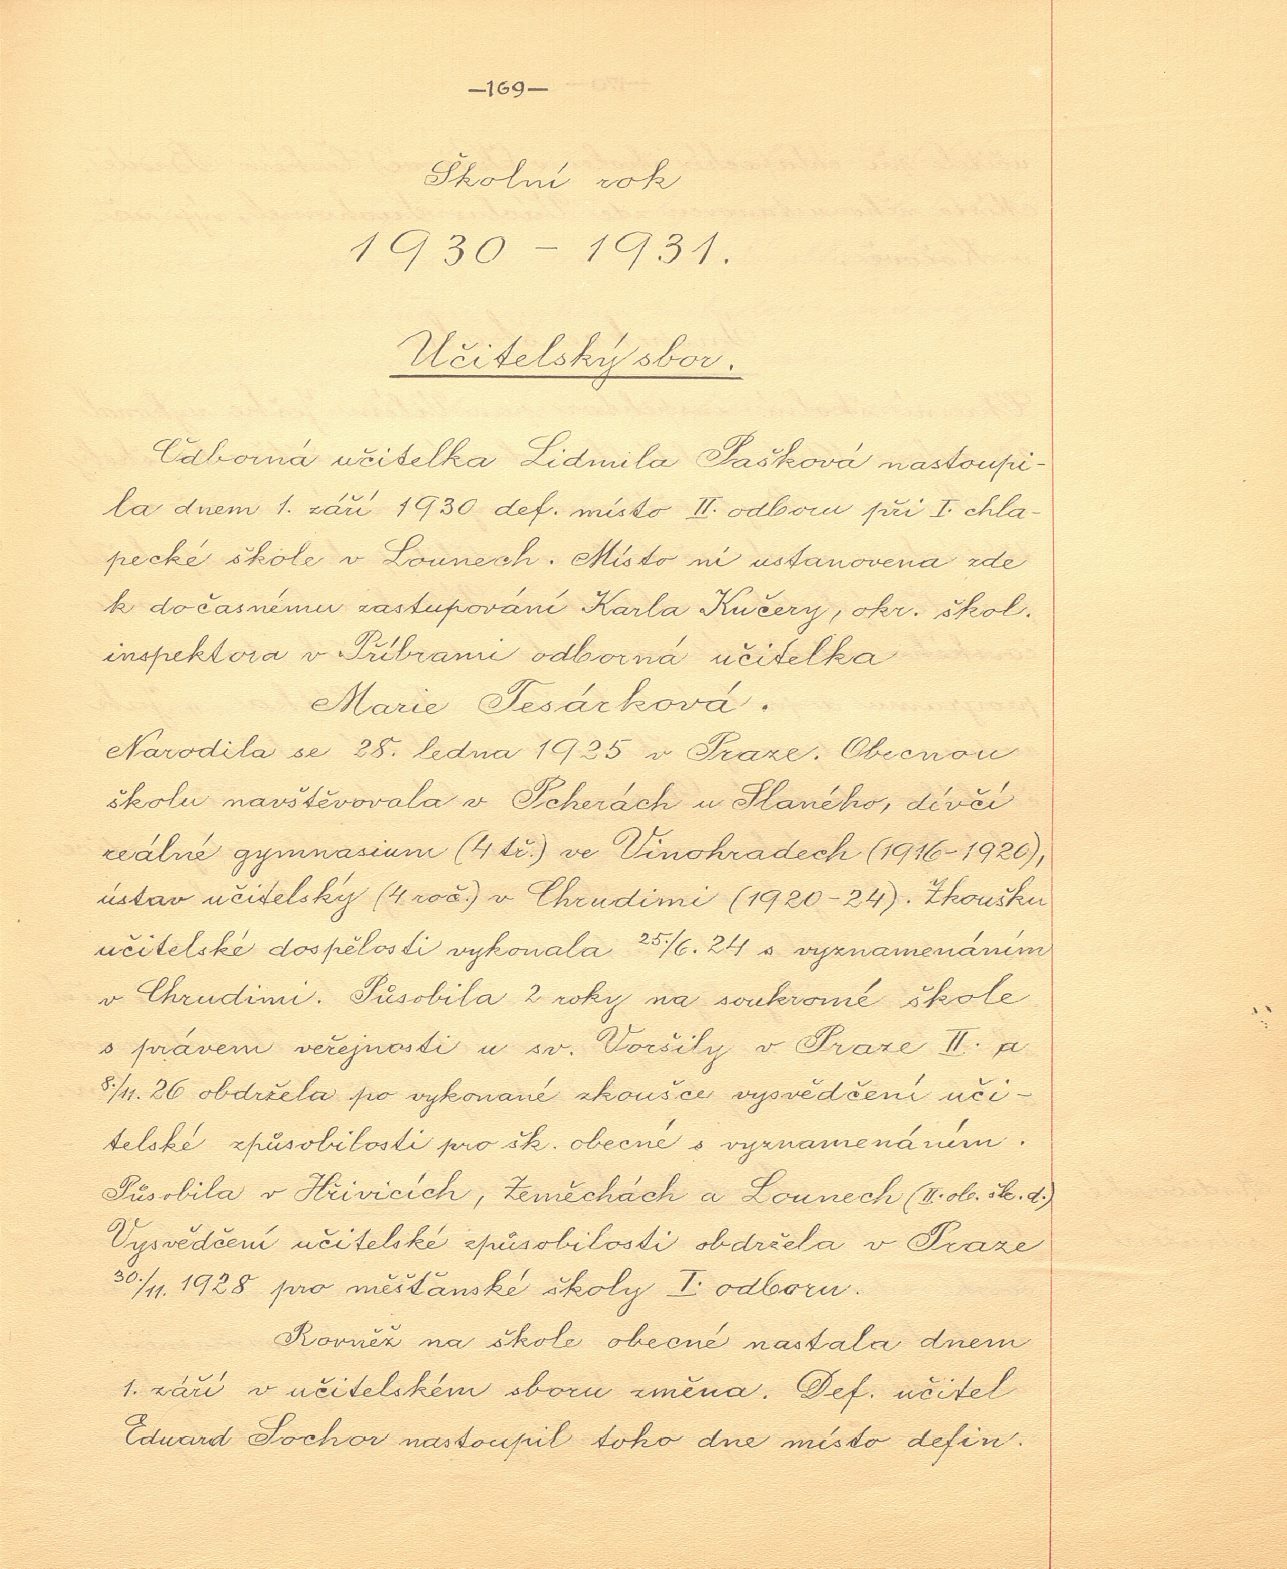 —169—
Školní rok
1930 – 1931.
Učitelský sbor.
Odborná učitelka Lidmila Pašková nastoupi-
la dnem 1. září 1930 def. místo II. odboru při I. chla-
pecké škole v Lounech. Místo ní ustanovena zde
k dočasnému zastupování Karla Kučery, okr. škol.
inspektora v Příbrami odborná učitelka
Marie Tesárková.
Narodila se 28. ledna 1925 v Praze. Obecnou
školu navštěvovala v Pcherách u Slaného, dívčí
reálné gymnasium (4 tř.) ve Vinohradech (1916–1920),
ústav učitelský (4 roč.) v Chrudimi (1920–24). Zkoušku
učitelské dospělosti vykonala 25./6. 24 s vyznamenáním
v Chrudimi. Působila 2 roky na soukromé škole
s právem veřejnosti u sv. Voršily v Praze II. a
8./11. 26 obdržela po vykonané zkoušce vysvědčení uči-
telské způsobilosti pro šk. obecné s vyznamenáním.
Působila v Hřivicích, Zeměchách a Lounech (II. ob. šk. d.)
Vysvědčení učitelské způsobilosti obdržela v Praze
30./11. 1928 pro měšťanské školy I. odboru.
Rovněž na škole obecné nastala dnem
1. září v učitelském sboru změna. Def. učitel
Eduard Sochor nastoupil toho dne místo defin.